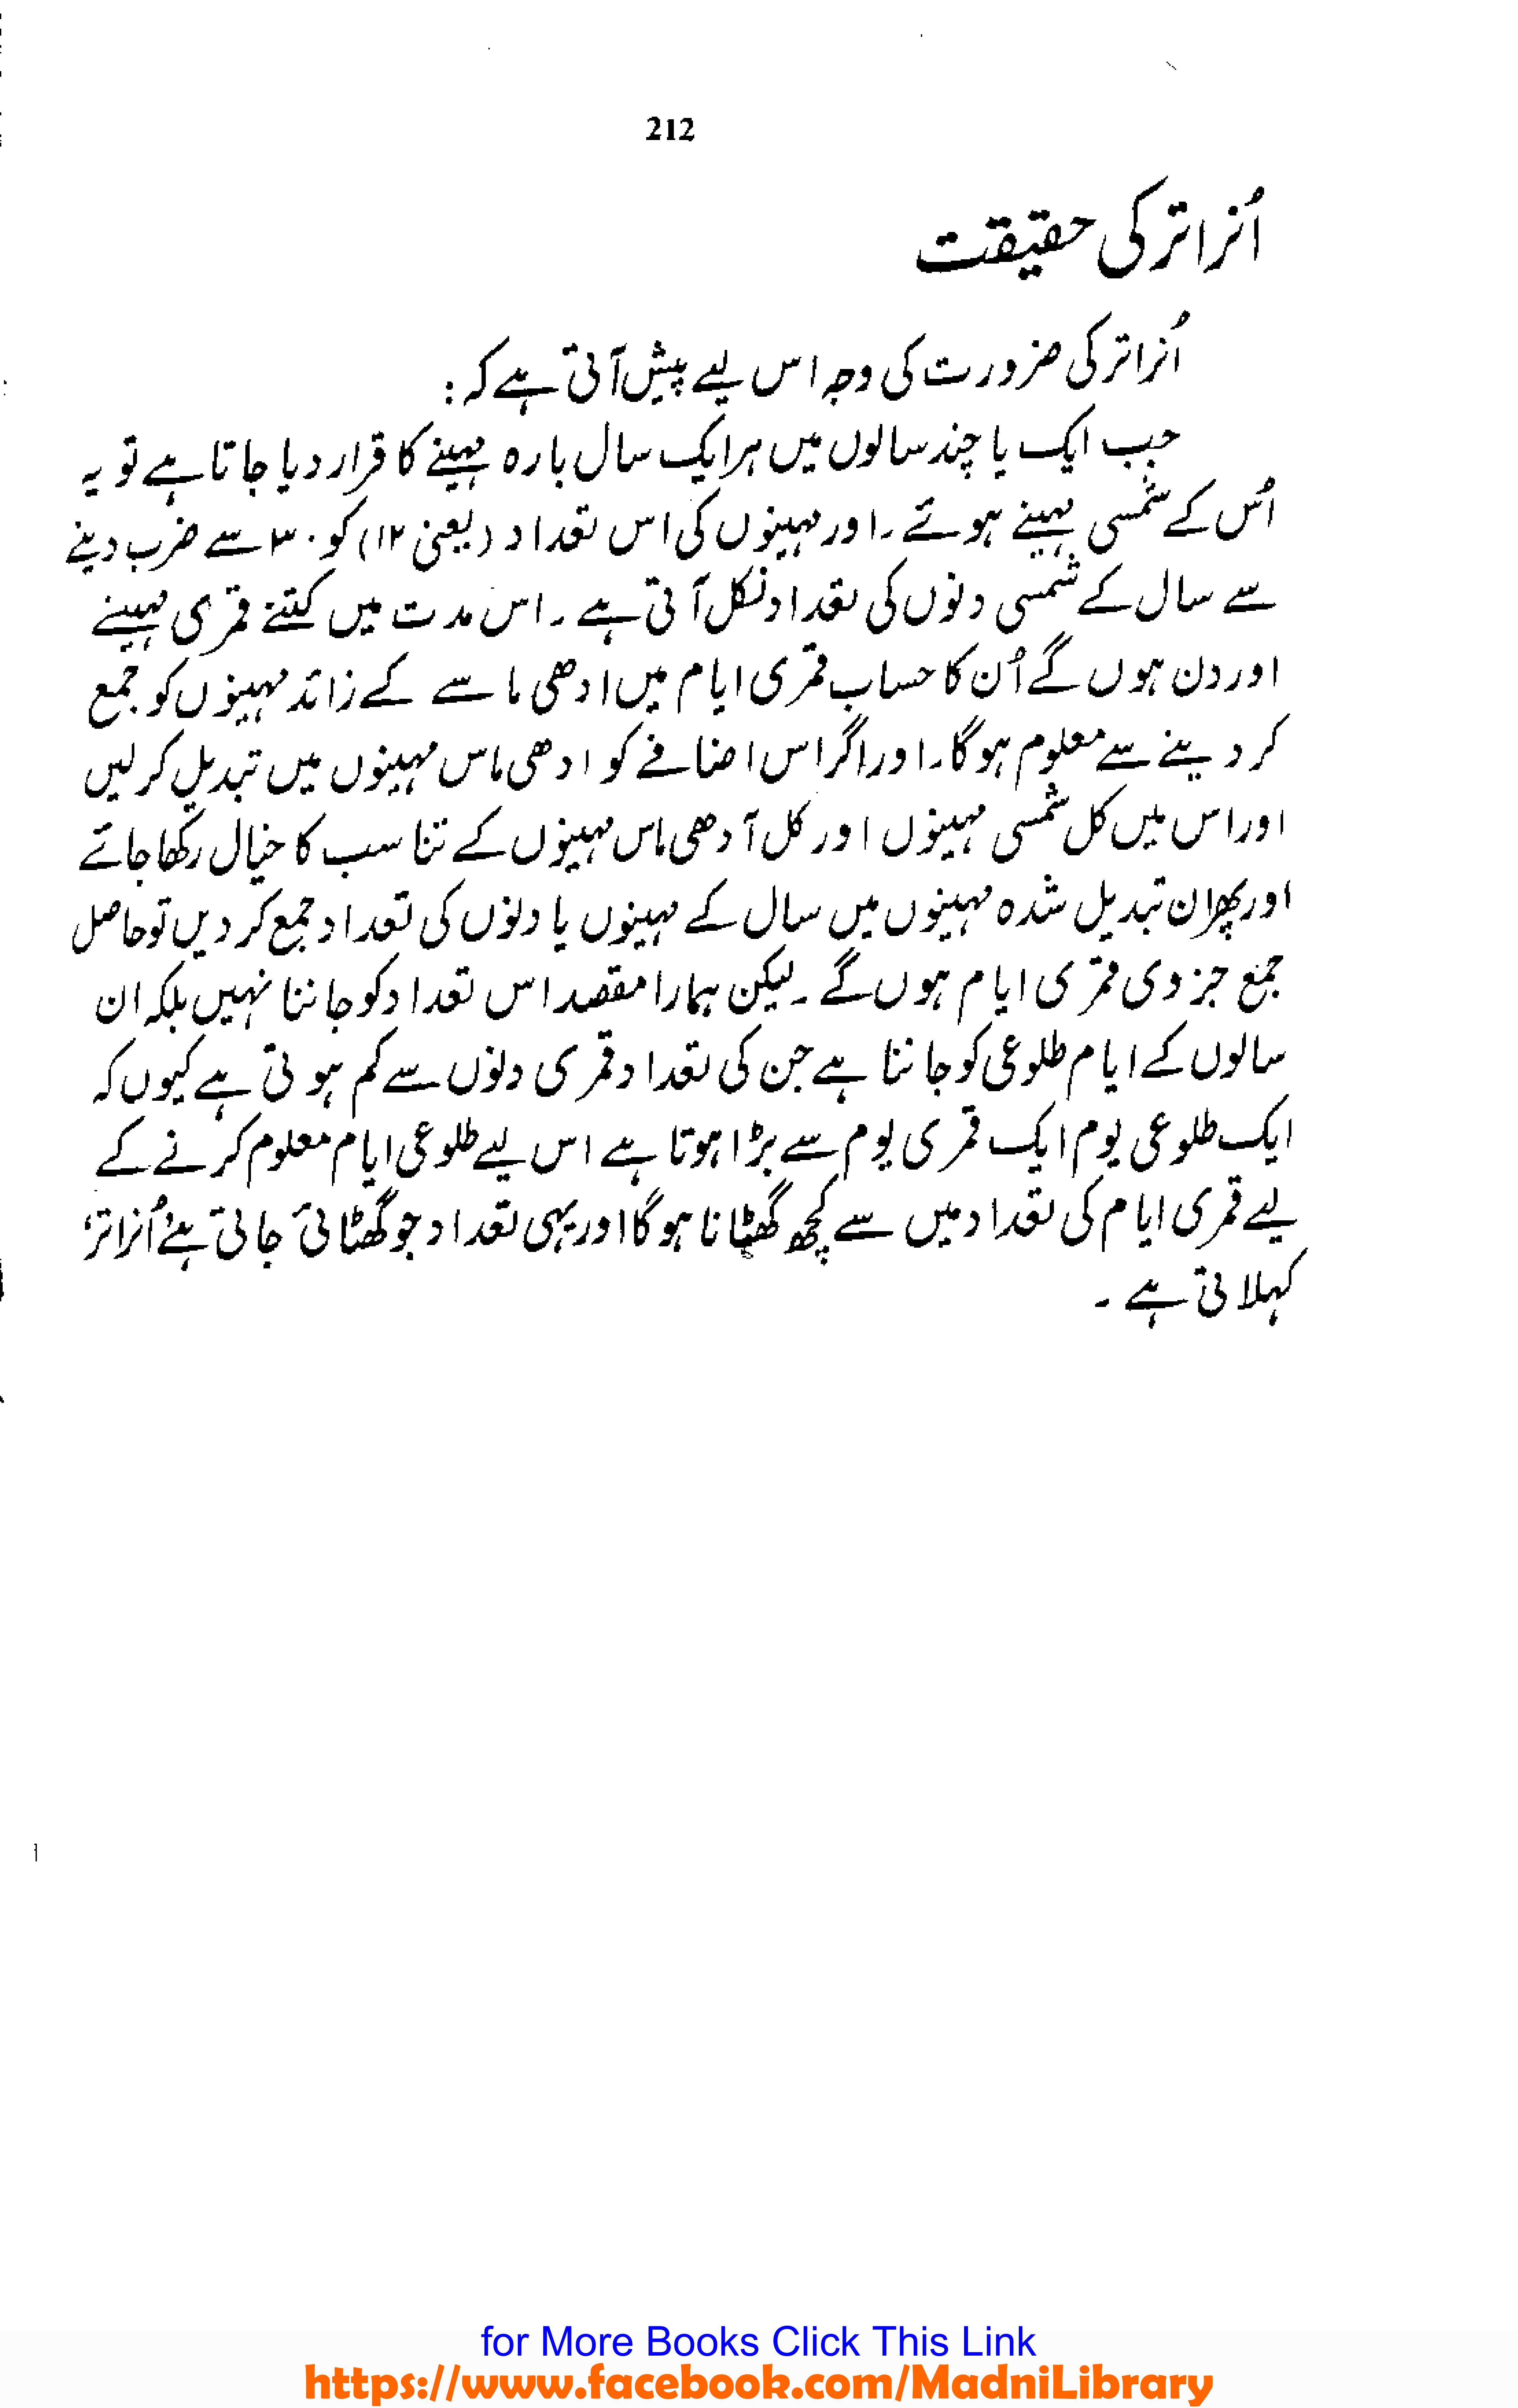 212
اُنراتر کی حقیقت
اُنراتر کی ضرورت کی وجہ اس لیے پیش آتی ہے کہ :
جب ایک یا چند سالوں میں ہر ایک سال بارہ مہینے کا قرار دیا جاتا ہے تو یہ
اُس کے شمسی مہینے ہوئے ۔ اور مہینوں کی اس تعداد (یعنی ۱۲) کو ۳۰ سے ضرب دینے
سے سال کے شمسی دنوں کی تعداد نکل آتی ہے ۔ اس مدت میں کتنے قمری مہینے
اور دن ہوں گے اُن کا حساب قمری ایام میں ادھی ماسے کے زائد مہینوں کو جمع
کر دینے سے معلوم ہوگا۔ اور اگر اس اضافے کو ادھی ماس مہینوں میں تبدیل کر لیں
اور اس میں کل شمسی مہینوں اور کل آدھی ماس مہینوں کے تناسب کا خیال رکھا جائے
اور پھر ان تبدیل شدہ مہینوں میں سال کے مہینوں یا دنوں کی تعداد جمع کر دیں تو حاصل
جمع جزوی قمری ایام ہوں گے ۔ لیکن ہمارا مقصد اس تعداد کو جاننا نہیں بلکہ ان
سالوں کے ایام طلوعی کو جاننا ہے جن کی تعداد قمری دنوں سے کم ہوتی ہے کیوں کہ
ایک طلوعی یوم ایک قمری یوم سے بڑا ہوتا ہے اس لیے طلوعی ایام معلوم کرنے کے
لیے قمری ایام کی تعداد میں سے کچھ گھٹانا ہوگا اور یہی تعداد جو گھٹائی جاتی ہے ’اُنراتر‘
کہلاتی ہے ۔
for More Books Click This Link
https://www.facebook.com/MadniLibrary